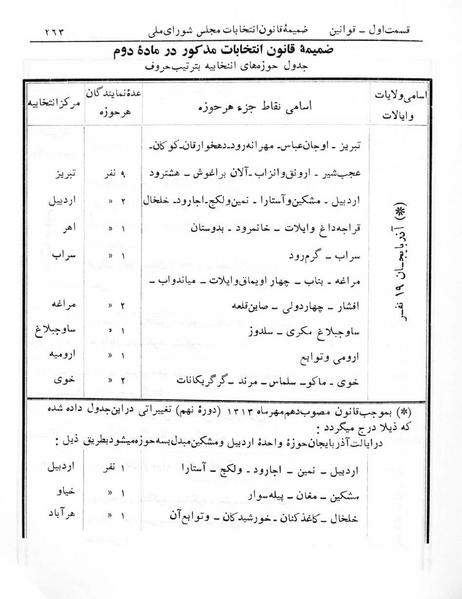 قسمت اول ـ قوانین ضمیمهٔ قانون انتخابات مجلس شورای ملی ۲۶۳
ضمیمهٔ قانون انتخابات مذکور در مادهٔ دوم
جدول حوزه‌های انتخابیه بترتیب حروف
اسامی ولایات و ایالات اسامی نقاط جزء هر حوزه عدهٔ نمایندگان هر حوزه مرکز انتخابیه
(*) آذربایجان ۱۹ نفر
تبریز ـ اوجان عباس ـ مهرانه رود ـ دهخوارقان ـ کوکان ـ
عجب‌شیر ـ ارونق و انزاب ـ آلان براغوش ـ هشترود ۹ نفر تبریز
اردبیل ـ مشکین و آستارا ـ نمین و لکج ـ اجارود ـ خلخال ۲ » اردبیل
قراجه‌داغ و ایلات ـ خانمرود ـ بدوستان ۱ » اهر
سراب ـ گرم‌رود ۱ » سراب
مراغه ـ بناب ـ چهار اویماق و ایلات ـ میاندواب ـ
افشار ـ چهاردولی ـ صاین قلعه ۲ » مراغه
ساوجبلاغ مکری ـ سلدوز ۱ » ساوجبلاغ
ارومی و توابع ۱ » ارومیه
خوی ـ ماکو ـ سلماس ـ مرند ـ گرگریکانات ۲ » خوی
(*) بموجب قانون مصوب دهم مهر ماه ۱۳۱۳ (دورهٔ نهم) تغییراتی در این جدول داده شده
که ذیلا درج میگردد :
در ایالت آذربایجان حوزهٔ واحدهٔ اردبیل و مشکین مبدل بسه حوزه میشود بطریق ذیل :
اردبیل ـ نمین ـ اجارود ـ ولکج ـ آستارا ۱ نفر اردبیل
مشکین ـ مغان ـ پیله‌سوار ۱ » خیاو
خلخال ـ کاغذکنان ـ خورشیدکان ـ و توابع آن ۱ » هرآباد